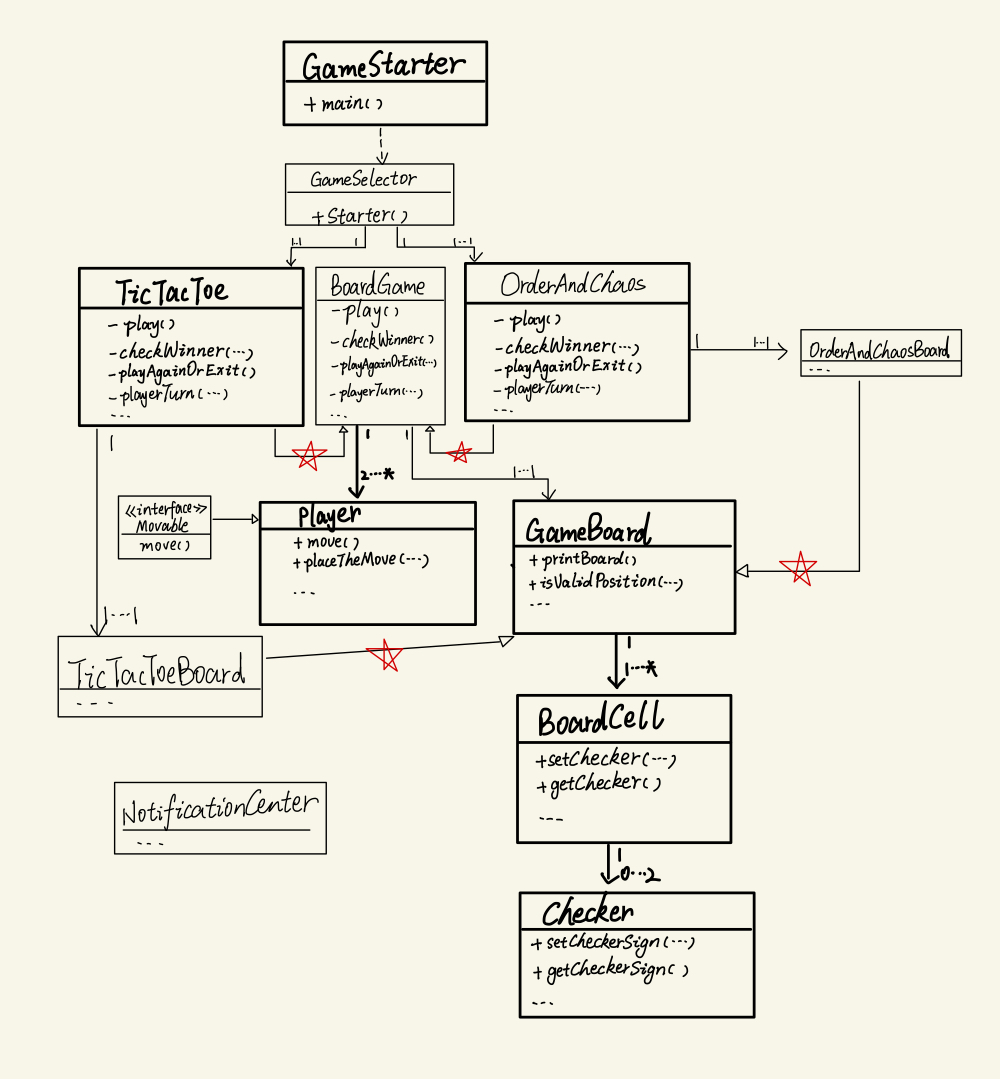 GameStarter
+ main()
GameSelector
+ Starter()
1...1
1
1
1...1
TicTacToe
- play()
- checkWinner(...)
- playAgainOrExit()
- playerTurn(...)
...
BoardGame
- play()
- checkWinner()
- playAgainOrExit(...)
- playerTurn(...)
...
OrderAndChaos
- play()
- checkWinner(...)
- playAgainOrExit()
- playerTurn(...)
...
1
1...1
OrderAndChaosBoard
...
1
1
1
2...*
1...1
<<interface>>
Movable
move()
Player
+ move()
+ placeTheMove(...)
...
GameBoard
+ printBoard()
+ isValidPosition(...)
...
1...1
TicTacToeBoard
...
1
1...*
BoardCell
+ setChecker(...)
+ getChecker()
...
NotificationCenter
...
1
0...2
Checker
+ setCheckerSign(...)
+ getCheckerSign()
...